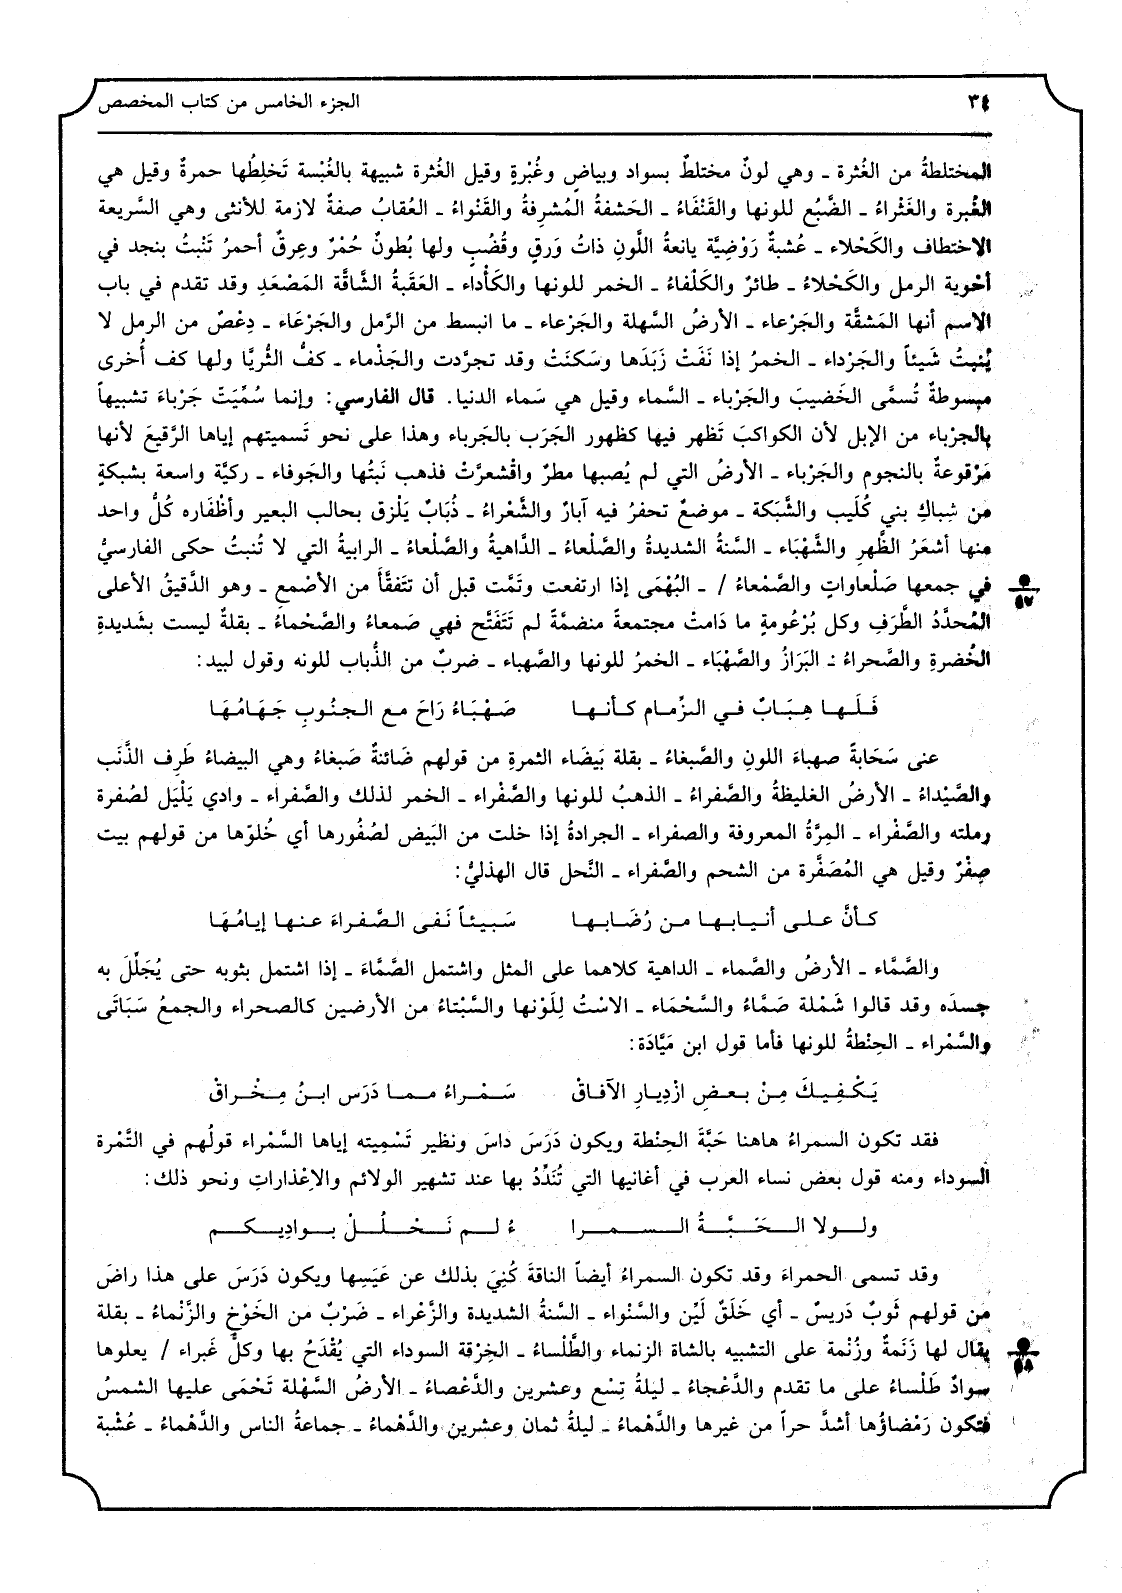 ٣٤
الجزء الخامس من كتاب المخصص
المختلطةُ من الغُثرة ـ وهي لونٌ مختلطٌ بسواد وبياضٍ وغُبْرةٍ وقيل الغُثرة شبيهة بالغُبْسة تَخلِطُها حمرةٌ وقيل هي
الغُبرة والغَثْراءُ ـ الضَّبُع للونها والقَنْفَاءُ ـ الحَشفةُ المُشرِفةُ والقَنْواءُ ـ العُقابُ صفةٌ لازمة للأنثى وهي السَّريعة
الاختطاف والكَحْلاء ـ عُشبةٌ رَوْضِيَّة يانعةُ اللَّونِ ذاتُ وَرقٍ وقُضُبٍ ولها بُطونٌ حُمْرٌ وعِرقٌ أحمرُ تَنْبتُ بنجد في
أحْوِية الرمل والكَحْلاءُ ـ طائرٌ والكَلْفاءُ ـ الخمر للونها والكأْداء ـ العَقَبةُ الشَّاقَّة المَصْعَدِ وقد تقدم في باب
الاسم أنها المَشقَّة والجَرْعاء ـ الأرضُ السَّهلة والجَرْعاء ـ ما انبسط من الرَّمل والجَرْعَاء ـ دِعْصٌ من الرمل لا
يُنبِتُ شَيئاً والجَرْداء ـ الخمرُ إذا نَفَتْ زَبَدَها وسَكنَتْ وقد تجرَّدت والجَذْماء ـ كفُّ الثُّريَّا ولها كف أُخرى
مبسوطةٌ تُسمَّى الخَضيبَ والجَرْباء ـ السَّماء وقيل هي سَماء الدنيا. قال الفارسي: وإنما سُمِّيَتْ جَرْباءَ تشبيهاً
بالجرْباء من الإبل لأن الكواكبَ تَظهر فيها كظهور الجَرَب بالجَرباء وهذا على نحو تَسميتهم إياها الرَّقيعَ لأنها
مَرْقوعةٌ بالنجوم والجَرْباء ـ الأرضُ التي لم يُصبها مطرٌ واقْشعرَّتْ فذهب نَبتُها والجَوفاء ـ ركيَّة واسعة بشبكةٍ
من شِباكِ بني كُلَيب والشَّبَكة ـ موضعٌ تحفرُ فيه آبارٌ والشَّعْراءُ ـ ذُبَابٌ يَلْزق بحالب البعير وأظْفاره كُلُّ واحد
منها أشعَرُ الظَّهرِ والشَّهْبَاء ـ السَّنةُ الشديدةُ والصَّلْعاءُ ـ الدَّاهيةُ والصَّلْعاءُ ـ الرابيةُ التي لا تُنبتُ حكى الفارسيُّ
في جمعها صَلْعاواتٍ والصَّمْعاءُ / ـ البُهْمَى إذا ارتفعت وتَمَّت قبل أن تَتفقَّأَ من الأصْمع ـ وهو الدَّقيقُ الأعلى
٥
٥٧
المُحدَّدُ الطَّرَفِ وكل بُرْعُومةٍ ما دَامتْ مجتمعةً منضمَّةً لم تَتَفَتَّح فهي صَمعاءُ والصَّحْماءُ ـ بقلةٌ ليست بشَديدةِ
الخُضرةِ والصَّحراءُ ـ البَرَازُ والصَّهْبَاء ـ الخمرُ للونها والصَّهباء ـ ضربٌ من الذُّباب للونه وقول لبيد:
فَـلَـهـا هِـبَـابٌ فـي الـزِّمـام كـأنـهـا صَـهْـبَـاءُ رَاحَ مـع الـجـنُـوبِ جَـهَـامُـهَـا
عنى سَحَابةً صهباءَ اللونِ والصَّبغاءُ ـ بقلة بَيضَاء الثمرةِ من قولهم ضَائنةٌ صَبغاءُ وهي البيضاءُ طَرِف الذَّنَب
والصَّيْداءُ ـ الأرضُ الغليظةُ والصَّفراءُ ـ الذهبُ للونها والصَّفْراء ـ الخمر لذلك والصَّفراء ـ وادي يَلْيَل لصُفرة
رملته والصَّفْراء ـ المِرَّةُ المعروفة والصفراء ـ الجرادةُ إذا خلت من البَيض لصُفُورها أي خُلوّها من قولهم بيت
صِفْرٌ وقيل هي المُصَفَّرة من الشحم والصَّفراء ـ النَّحل قال الهذليُّ:
كـأنَّ عـلـى أنـيـابـهـا مـن رُضَـابـهـا سَـبـيـئـاً نَـفـى الـصَّـفـراءَ عـنـهـا إيـامُـهَـا
والصَّمَّاء ـ الأرضُ والصَّماء ـ الداهية كلاهما على المثل واشتمل الصَّمَّاءَ ـ إذا اشتمل بثوبه حتى يُجَلِّلَ به
جسدَه وقد قالوا شَمْلة صَمَّاءُ والسَّحْمَاء ـ الاسْتُ لِلَوْنها والسَّبْتاءُ من الأرضين كالصحراء والجمعُ سَبَاتَى
والسَّمْراء ـ الحِنْطةُ للونها فأما قول ابن مَيَّادَة:
يَـكْـفِـيـكَ مِـنْ بـعـضِ ازْدِيـارِ الآفـاقْ سَـمْـراءُ مـمـا دَرَس ابـنُ مِـخْـراقْ
فقد تكون السمراءُ هاهنا حَبَّةَ الحِنْطة ويكون دَرَسَ داسَ ونظير تَسْمِيته إياها السَّمْراء قولُهم في التَّمْرة
السوداء ومنه قول بعض نساء العرب في أغانيها التي تُنَدِّدُ بها عند تشهير الولائم والإعْذاراتِ ونحو ذلك:
ولـولا الـحَـبَّـةُ الـسـمـرا ءُ لـم نَـحْـلُـلْ بـوادِيـكـم
وقد تسمى الحمراءَ وقد تكون السمراءُ أيضاً الناقةَ كُنِيَ بذلك عن عَيَسِها ويكون دَرَسَ على هذا راضَ
من قولهم ثَوبٌ دَريسٌ ـ أي خَلَقٌ لَيِّن والسَّنْواء ـ السَّنةُ الشديدة والزَّعْراء ـ ضَرْبٌ من الخَوْخِ والزَّنْماءُ ـ بقلة
يقال لها زَنَمةٌ وزُنْمة على التشبيه بالشاة الزنماء والطَّلْساءُ ـ الخِرْقة السوداء التي يُقْدَحُ بها وكلُّ غَبراء / يعلوها
٥
٥٨
سوادٌ طَلْساءُ على ما تقدم والدَّعْجاءُ ـ ليلةُ تِسْع وعشرين والدَّعْصاءُ ـ الأرضُ السَّهْلة تَحْمَى عليها الشمسُ
فتكون رَمْضاؤُها أشدَّ حراً من غيرها والدَّهْماءُ ـ ليلةُ ثمان وعشرين والدَّهْماءُ ـ جماعةُ الناس والدَّهْماءُ ـ عُشْبة